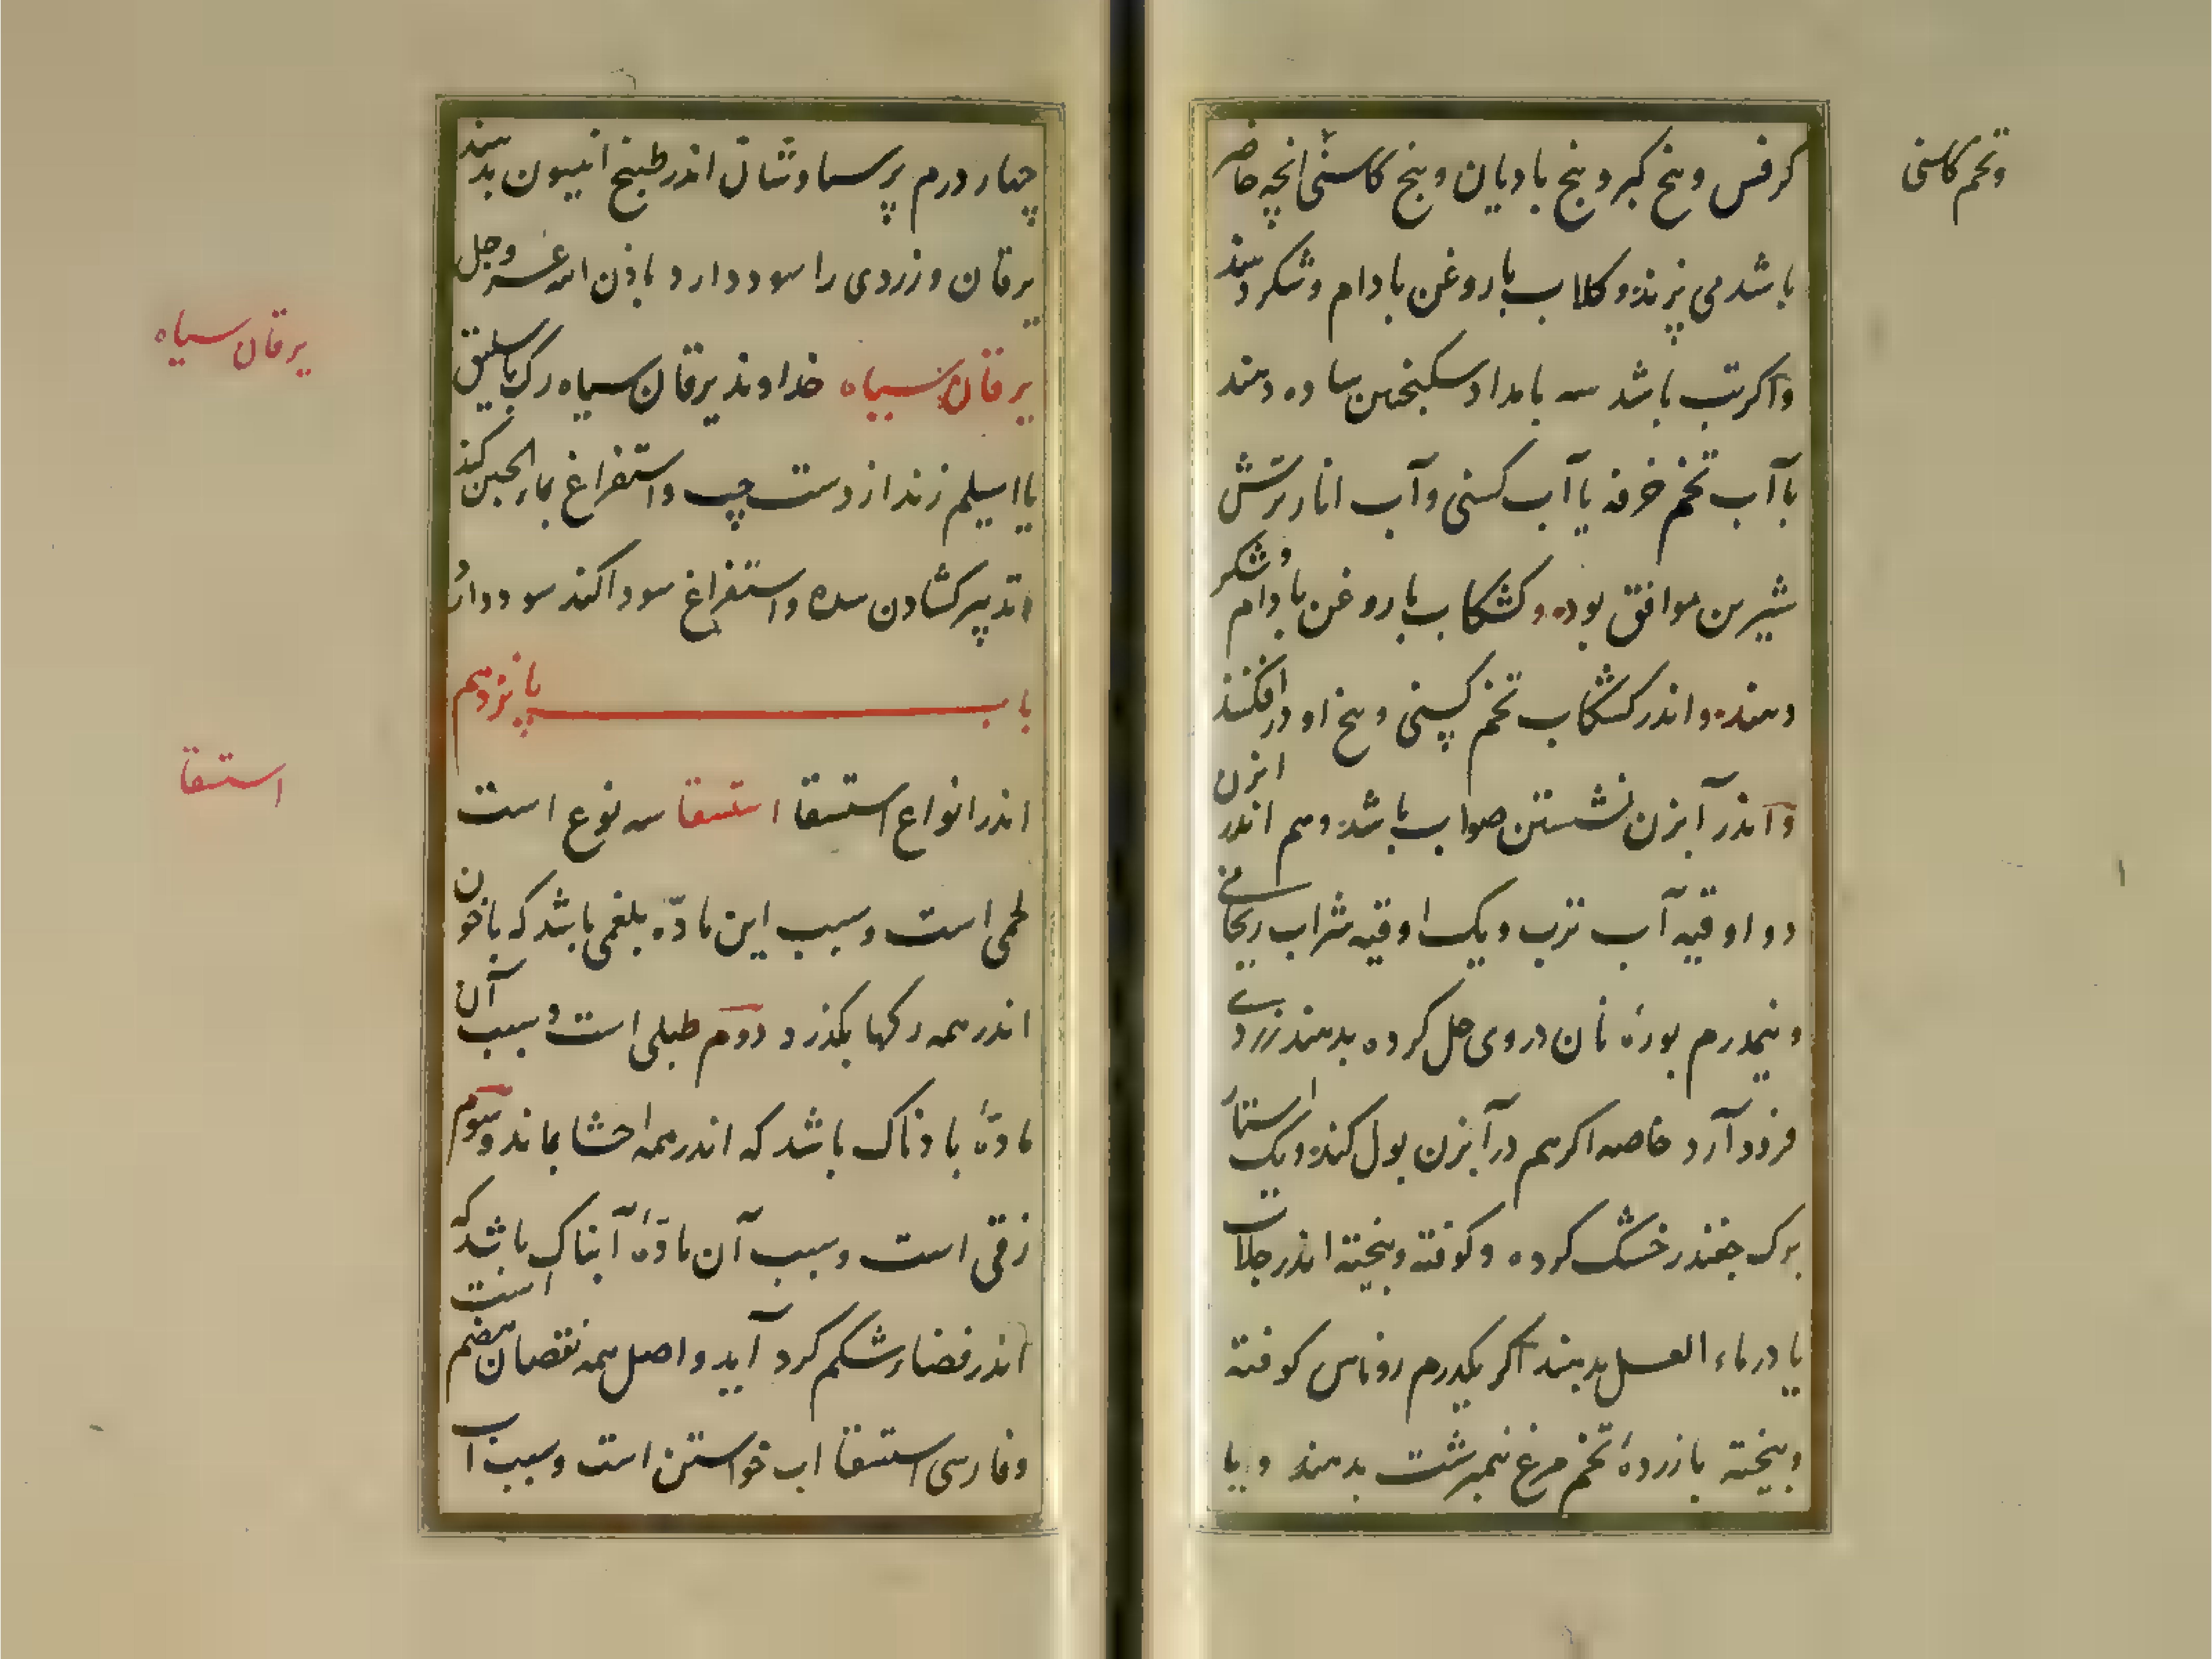 کرفس و بیخ کبر و بیخ بادیان و بیخ کاسنی انچه حاضر
و تخم کاسنی
باشد می پزند و کلاب با روغن بادام و شکر دهند
و اکر تب باشد سه بامداد سکنجبین ساده دهند
با آب تخم خرفه یا آب کسنی و آب انار ترش
شیرین موافق بود و کشکاب با روغن بادام و شکر
دهند و اندر کشکاب تخم کسنی و بیخ او در افکنند
و اندر آبزن نشستن صواب باشد و هم اندر ابزن
دو اوقیه آب ترب و یک اوقیه شراب ریحانی
و نیمدرم بورهٔ نان در وی حل کرده بدهند زردی
فرود آرد خاصه اکر هم در آبزن بول کند و یک استار
برک جغندر خشک کرده و کوفته و بیخته اندر جلاب
یا در ماء العسل بدهند اکر یکدرم روناس کوفته
و بیخته با زردهٔ تخم مرغ نیمبرشت بدهند و یا
چهار درم پرسیاوشان اندر طبیخ انیسون بدهند
یرقان و زردی را سود دارد باذن الله عز و جل
یرقان سیاه خداوند یرقان سیاه رک باسلیق
یرقان سیاه
یا اسیلم زند از دست چپ و استفراغ بماء الجبن کند
و تدبیر کشادن سده و استفراغ سودا کند سود دارد
باب پانزدهم
اندر انواع استسقا استسقا سه نوع است
استسقا
لحمی است و سبب این مادّه بلغمی باشد که با خون
اندر همه رکها بکذرد دوم طبلی است و سبب آن
مادّهٔ بادناک باشد که اندر همه احشا بماند و سوم
زقی است و سبب آن مادّهٔ آبناک باشد که
اندر فضاء شکم کرد آید و اصل همه نقصان هضم است
و فارسی استسقا اب خواستن است و سبب اب